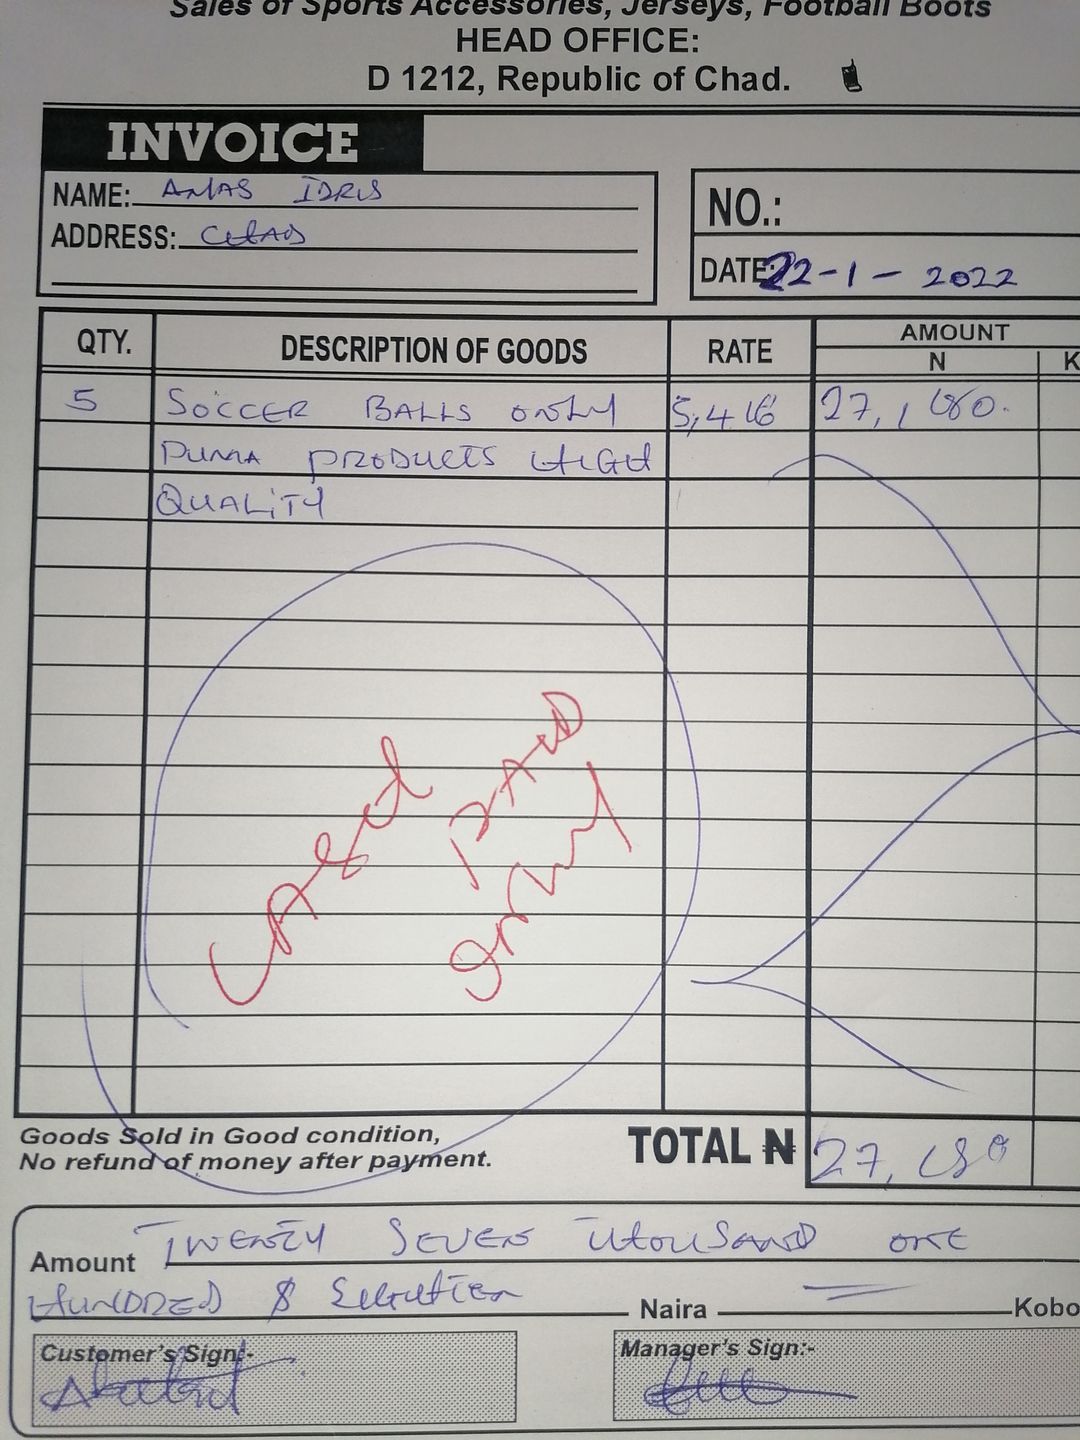 Sales of Sports Accessories, Jerseys, Football Boots
HEAD OFFICE:
D 1212, Republic of Chad.
INVOICE
NAME: ANAS IDRIS
ADDRESS: CHAD
NO.:
DATE: 22-1-2022
QTY. DESCRIPTION OF GOODS RATE AMOUNT
N K
5 SOCCER BALLS ONLY 5,416 27,180.
PUMA PRODUCTS HIGH
QUALITY
CASH PAID
ONLY
Goods Sold in Good condition,
No refund of money after payment.
TOTAL ₦ 27,180
Amount TWENTY SEVEN THOUSAND ONE
HUNDRED & Naira Kobo
Customer's Sign:-
Manager's Sign:-